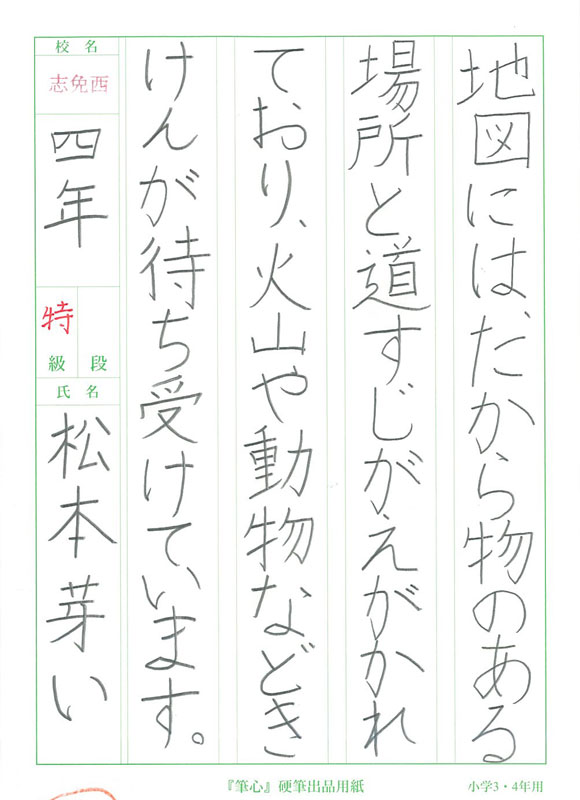 地図には、たから物のある
場所と道すじがえがかれ
ており、火山や動物などき
けんが待ち受けています。
校名
志免西
四年
特
級 段
氏名
松本芽い
『筆心』硬筆出品用紙
小学3・4年用